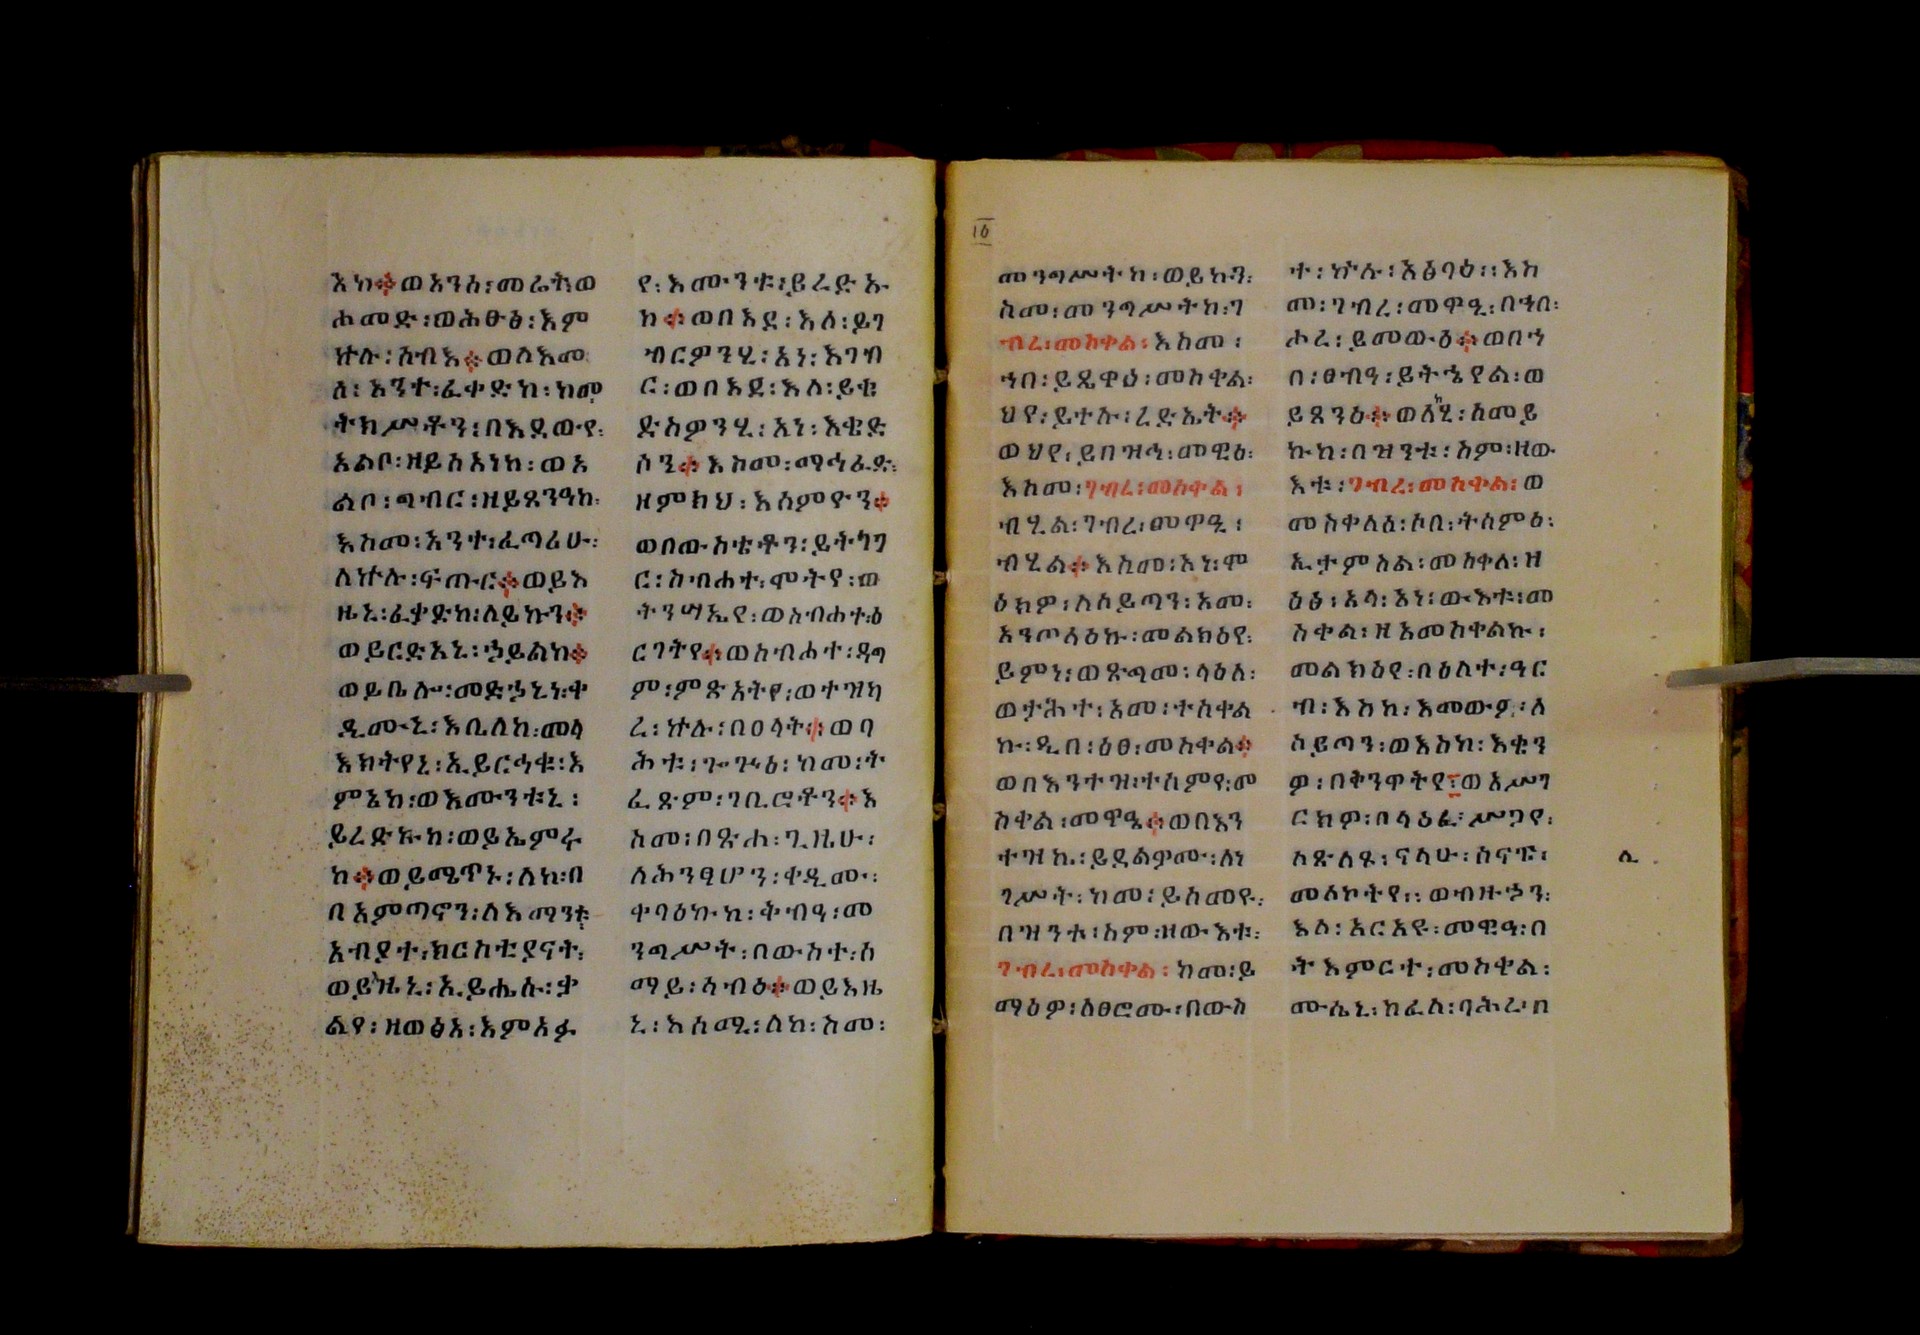 እከ፨ወአንሰ፡መሬት፡ወ
ሐመድ፡ወሕፁፅ፡እም
ኵሉ፡ሰብእ፨ወሶእመ
ለ፡አንተ፡ፈቀድከ፡ከመ
ትክሥቶን፡በእደውየ፡
አልቦ፡ዘይስእነከ፡ወአ
ልቦ፡ግብር፡ዘይጸንዓከ፡
እስመ፡አንተ፡ፈጣሪሁ፡
ለኵሉ፡ፍጡር፨ወይእ
ዜኒ፡ፈቃድከ፡ለይኩን፨
ወይርድአኒ፡ኃይልከ፨
ወይቤሎ፡መድኃኒነ፡ቀ
ዲሙኒ፡እቤለከ፡መላ
እክትየኒ፡ኢይርኅቁ፡እ
ምኔከ፡ወእሙንቱኒ፡
ይረድኡከ፡ወይኤምራ
ከ፨ወይሜጥኑ፡ለከ፡በ
በአምጣኖን፡ለእማንቱ
አብያተ፡ክርስቲያናት፡
ወይእዜኒ፡ኢይሔሱ፡ቃ
ልየ፡ዘወፅአ፡እምአፉ
የ፡እሙንቱ፡ይረድኡ
ከ፨ወበእደ፡እለ፡ይገ
ብርዎንሂ፡አነ፡እገብ
ር፡ወበእደ፡እለ፡ይቄ
ድስዎንሂ፡አነ፡እቄድ
ሶን፨እስመ፡ማኅፈድ፡
ዘምክህ፡እሰምዮን፨
ወበውስቴቶን፡ይትላገ
ር፡ስብሐተ፡ሞትየ፡ወ
ትንሣኤየ፡ወስብሐተ፡ዕ
ርገትየ፨ወስብሐተ፡ዳግ
ም፡ምጽአትየ፡ወተዝካ
ረ፡ኵሉ፡በዐላት፨ወባ
ሕቱ፡ጐጕዕ፡ከመ፡ት
ፈጽም፡ገቢሮቶን፨እ
ስመ፡በጽሐ፡ጊዜሁ፡
ለሕንፃሆን፡ቀዲሙ፡
ቀባዕኩከ፡ቅብዓ፡መ
ንግሥት፡በውስተ፡ሰ
ማይ፡ሳብዕ፨ወይእዜ
ኒ፡እሰሚ፡ለከ፡ስመ፡
መንግሥትከ፡ወይከውን፡
ስመ፡መንግሥትከ፡ገ
ብረ፡መስቀል፡እስመ፡
ኀበ፡ይጼዋዕ፡መስቀል፡
ህየ፡ይተሉ፡ረድኤት፨
ወህየ፡ይበዝኅ፡መዊዕ፡
እስመ፡ገብረ፡መስቀል፡
ብሂል፡ገብረ፡መዋዒ፡
ብሂል፨እስመ፡አነ፡ሞ
ዕክዎ፡ለሰይጣን፡አመ፡
አንጦላዕኩ፡መልክዕየ፡
ይምነ፡ወጽጋመ፡ላዕለ፡
ወታሕተ፡አመ፡ተሰቀል
ኩ፡ዲበ፡ዕፀ፡መስቀል፨
ወበእንተዝ፡ተሰምየ፡መ
ስቀል፡መዋዔ፨ወበእን
ተዝኬ፡ይደልዎሙ፡ለነ
ገሥት፡ከመ፡ይሰመዩ፡
በዝንቱ፡ስም፡ዘውእቱ፡
ገብረ፡መስቀል፡ከመ፡ይ
ማዕዎ፡ለፀሮሙ፡በውስ
ተ፡ኵሉ፡አፅባዕ፡፡እስ
መ፡ገብረ፡መዋዒ፡በኀበ፡
ሖረ፡ይመውዕ፨ወበኀ
በ፡ፀብዓ፡ይትኄየል፡ወ
ይጸንዕ፨ወለከሂ፡ሰመይ
ኩከ፡በዝንቱ፡ስም፡ዘው
እቱ፡ገብረ፡መስቀል፡ወ
መስቀለሰ፡ሶበ፡ትሰምዕ፡
ኢታምስል፡መስቀለ፡ዘ
ዕፅ፡አላ፡አነ፡ውእቱ፡መ
ስቀል፡ዘአመስቀልኩ፡
መልክዕየ፡በዕለተ፡ዓር
ብ፡እስከ፡እመውዖ፡ለ
ሰይጣን፡ወእስከ፡እቂን
ዎ፡በቅንዋትየ፡ወአሥገ
ርክዎ፡በላዕፈ፡ሥጋየ፡
ለጽልዱ፡ናሁ፡ሰናፔ፡
መለኮትየ፡፡ወብዙኃን፡
እለ፡አርአዩ፡መዊዓ፡በ
ትእምርተ፡መስቀል፡
ሙሴኒ፡ከፈለ፡ባሕረ፡በ